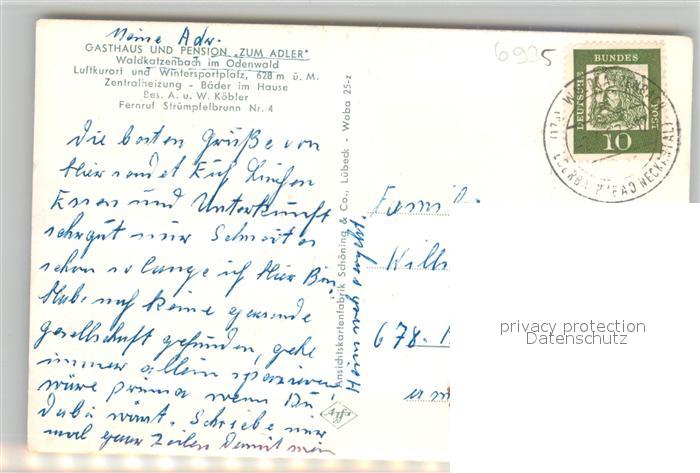 Meine Adr.
GASTHAUS UND PENSION „ZUM ADLER"
Waldkatzenbach im Odenwald
Luftkurort und Wintersportplatz, 628 m ü. M.
Zentralheizung - Bäder im Hause
Bes. A. u. W. Köbler
Fernruf Strümpfelbrunn Nr. 4
die besten Grüße von
Hier sendet Euch,
Essen und Unterkunft
sehr gut nur
schon so lange ich Hier Bin
Habe noch keine
gesellschaft gefunden, gehe
immer allein spazieren,
wäre prima wenn Du
Dabei wärst. Schreibe mir
mal paar Zeilen Damit mein
Heimweh
Ansichtskartenfabrik Schöning & Co., Lübeck - Woba 25-z
6935
DEUTSCHE BUNDESPOST
10
Famili
Willi
678.
am
privacy protection
Datenschutz